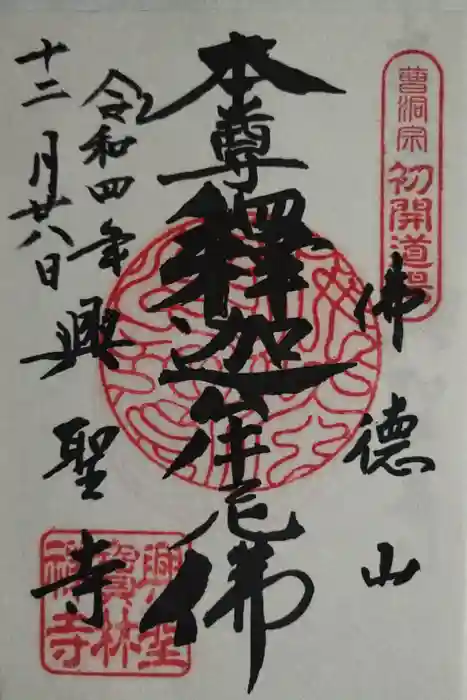 曹洞宗 初開道場
佛德山
本尊釋迦牟尼佛
令和四年
十二月廿八日
興聖寺
興聖寳林禅寺